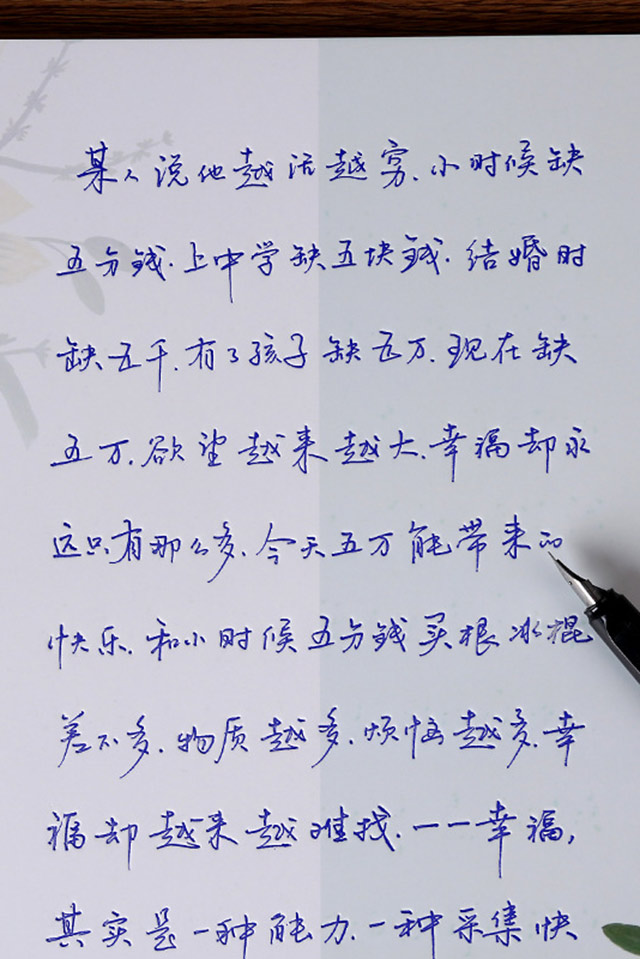 某人说他越活越穷.小时候缺
五分钱.上中学缺五块钱.结婚时
缺五千.有了孩子缺五万.现在缺
五万.欲望越来越大.幸福却永
远只有那么多.今天五万能带来的
快乐.和小时候五分钱买根冰棍
差不多.物质越多.烦恼越多.幸
福却越来越难找.一一幸福,
其实是一种能力.一种采集快